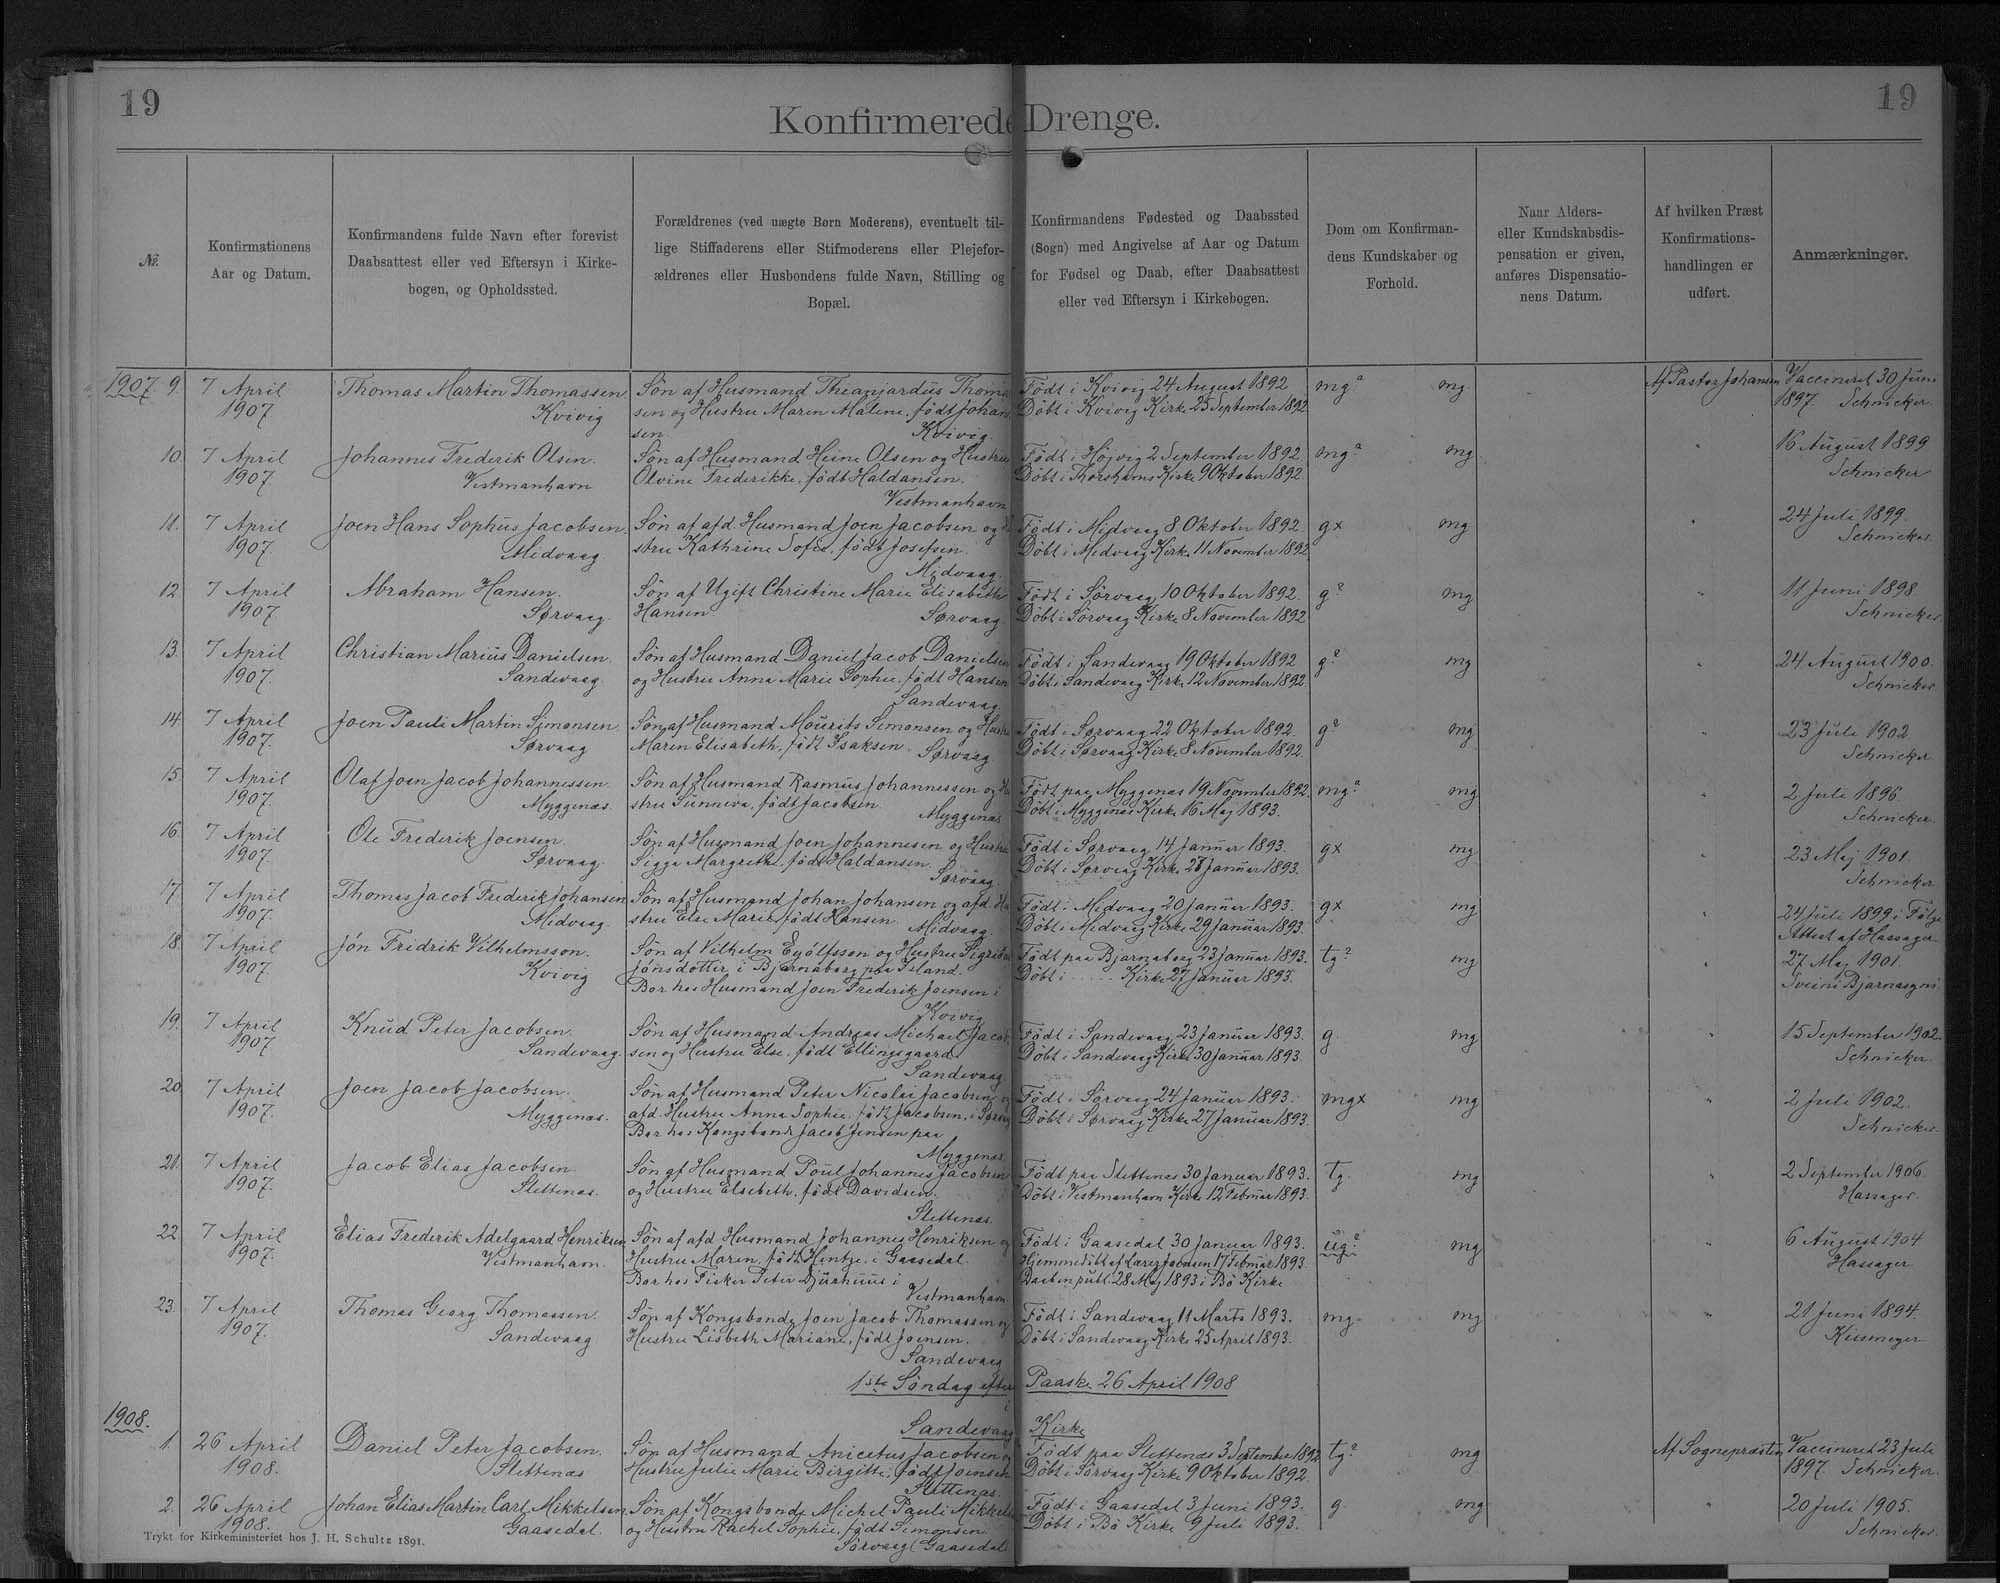 19
19
Konfirmerede Drenge.
Nr.
Konfirmationens
Aar og Datum.
Konfirmandens fulde Navn efter forevist
Daabsattest eller ved Eftersyn i Kirke-
bogen, og Opholdssted.
Forældrenes (ved uægte Børn Moderens), eventuelt til-
lige Stiffaderens eller Stifmoderens eller Plejefor-
ældrenes eller Husbondens fulde Navn, Stilling og
Bopæl.
Konfirmandens Fødested og Daabssted
(Sogn) med Angivelse af Aar og Datum
for Fødsel og Daab, efter Daabsattest
eller ved Eftersyn i Kirkebogen.
Dom om Konfirman-
dens Kundskaber og
Forhold.
Naar Alders-
eller Kundskabsdis-
pensation er given,
anføres Dispensatio-
nens Datum.
Af hvilken Præst
Konfirmations-
handlingen er
udført.
Anmærkninger.
1907. 9. 7 April Thomas Martin Thomassen Søn af Husmand Thomas Født i Kvivig 24 August 1892 mg? mg. Af Pastor Johansen Vaccineret 30 Juni
1907. Kvivig sen og Hustru Maren Malene, født Johan Døbt i Kvivig Kirke 25 September 1892 1897. Schnicker.
sen. Kvivig.
10. 7 April Johannes Frederik Olsen. Søn af Husmand Heine Olsen og Hustru Født i Højvig 2 September 1892 mg? mg. " 16 August 1899
1907. Vestmanhavn Olvine Frederikke, født Haldansen. Døbt i Thorshavns Kirke 9 Oktober 1892. Schnicker
Vestmanhavn
11. 7 April Joen Hans Sophus Jacobsen. Søn af afd. Husmand Joen Jacobsen og Født i Midvaag 8 Oktober 1892. gx mg " 24 Juli 1899.
1907. Midvaag. stru Kathrine Sofie, født Josefsen. Døbt i Midvaag Kirke 11 November 1892 Schnicker.
Midvaag.
12. 7 April Abraham Hansen. Søn af Ugift Christine Marie Elisabeth Født i Sørvaag 10 Oktober 1892. g? mg " 11 Juni 1898.
1907. Sørvaag. Hansen Sørvaag Døbt i Sörvaag Kirke 8 November 1892 Schnicker.
13. 7 April Christian Marius Danielsen. Søn af Husmand Daniel Jacob Danielsen Født i Sandevaag 19 Oktober 1892 g? mg " 24 August 1900.
1907. Sandevaag. og Hustru Anna Marie Sophie, født Hansen Døbt i Sandevaag Kirke 12 November 1892. Schnicker
Sandevaag.
14. 7 April Joen Pauli Martin Simonsen Søn af Husmand Mourits Simonsen og Hustru Født i Sørvaag 22 Oktober 1892. g? mg " 23 Juli 1902
1907. Sørvaag Maren Elisabeth, født Isaksen Sørvaag Døbt i Sørvaag Kirke 8 November 1892. Schnicker
15. 7 April Olaf Joen Jacob Johannessen. Søn af Husmand Rasmus Johannessen og Hu Født paa Myggenæs 19 November 1892. mg? mg " 2 Juli 1896.
1907. Myggenæs. stru Sunneva, født Jacobsen. Myggenæs Døbt i Myggenæs Kirke 16 Maj 1893. Schnicker.
16. 7 April Ole Frederik Joensen. Søn af Husmand Joen Johannesen og Hustru Født i Sørvaag 14 Januar 1893. gx mg " 23 Maj 1901.
1907. Sørvaag. Sigga Margrethe, født Haldansen. Sørvaag. Døbt i Sørvaag Kirke Januar 1893. Schnicker
17. 7 April Thomas Jacob Frederik Johansen Søn af Husmand Johan Johansen og afd. Hu Født i Midvaag 20 Januar 1893. gx mg " 24 Juli 1899 i Følge
1907. Midvaag. stru Else Marie født Hansen. Midvaag. Døbt i Midvaag Kirke 29 Januar 1893. Attest af Hassager.
18. 7 April Jón Fridrik Vilhelmsson. Søn af Vilhelm Eyólfsson og Hustru Sigrid Født paa Bjarnaborg 23 Januar 1893. tg? mg " 27 Maj 1901.
1907. Kvivig Jónsdotter i Bjarnaborg paa Island. Døbt i ..... Kirke 27 Januar 1893.
Bor hos Husmand Joen Frederik Joensen i
Kvivig
19. 7 April Knud Peter Jacobsen. Søn af Husmand Andreas Michael Jacob Født i Sandevaag 23 Januar 1893. g. mg " 15 September 1902.
1907 Sandevaag. sen og Hustru Else, født Ellingsgaard. Døbt i Sandevaag Kirke 30 Januar 1893. Schnicker.
Sandevaag
20. 7 April Joen Jacob Jacobsen. Søn af Husmand Peter Nicolai Jacobsen og Født i Sörvaag 24 Januar 1893. mgx mg " 2 Juli 1902.
1907. Myggenæs. afd. Hustru Anna Sophie, født Jacobsen, i Sørvaag Døbt i Sørvaag Kirke 27 Januar 1893. Schnicker.
Bor hos Kongsbonde Jacob Jensen paa
Myggenæs
21. 7 April Jacob Elias Jacobsen Søn af Husmand Poul Johannes Jacobsen Født paa Slettenæs 30 Januar 1893. Tg. mg " 2 September 1906.
1907. Slettenæs. og Hustru Elsebeth, født Davidsen. Døbt i Vestmanhavn Kirke 12 Februar 1893. Hassager.
Slettenæs
22. 7 April Elias Frederik Adelgaard Henriksen Søn af afd Husmand Johannes Henriksen og Født i Gaasedal 30 Januar 1893. ug? mg " 6 August 1904
1907. Vestmanhavn. Hustru Maren, født Hentze, i Gaasedal. Hjemmedøbt af Lærer Joensen 17 Februar 1893. Hassager
Bor hos Fisker Peter Djurhuus i Daaben publ. 28 Maj 1893 i Bø Kirke
Vestmanhavn
23. 7 April Thomas Georg Thomassen. Søn af Kongsbonde Joen Jacob Thomassen og Født i Sandevaag 11 Marts 1893. mg. mg " 21 Juni 1894.
1907. Sandevaag Hustru Lisbeth Mariane, født Joensen. Døbt i Sandevaag Kirke 25 April 1893. Kissmeyer
Sandevaag
1ste Søndag efter Paaske 26 April 1908
i
1908. Sandevaag Kirke
1. 26 April Daniel Peter Jacobsen. Søn af Husmand Anicetus Jacobsen og Født paa Slettenæs 3 September 1892 tg? mg Af Sognepræsten Vaccineret 23 Juli
1908. Slettenæs Hustru Julie Marie Birgitte, født Joensen Døbt i Sørvaag Kirke 9 Oktober 1892. 1897. Schnicker.
Slettenæs.
2. 26 April Johan Elias Martin Carl Mikkelsen. Søn af Kongsbonde Michel Pauli Mikkels Født i Gaasedal 3 Juni 1893. g. mg " 20 Juli 1905.
1908. Gaasedal. og Hustru Rachel Sophie, født Simonsen. Døbt i Bø Kirke 9 Juli 1893. Schnicker.
Sørvaag (Gaasedal
Trykt for Kirkeministeriet hos J. H. Schultz 1891.